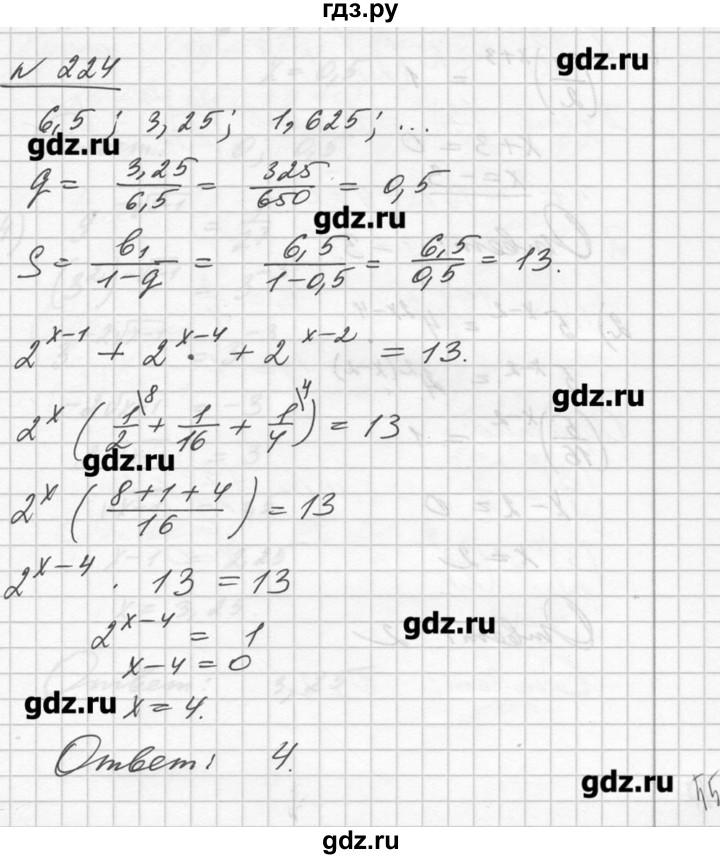 гдз.ру
№ 224
gdz.ru
6,5 ; 3,25 ; 1,625 ; ...
gdz.ru
q = 3,25/6,5 = 325/650 = 0,5
gdz.ru
S = b₁/(1-q) = 6,5/(1-0,5) = 6,5/0,5 = 13.
2^(x-1) + 2^(x-4) + 2^(x-2) = 13.
gdz.ru
2^x ( 1/2 \8 + 1/16 + 1/4 \4 ) = 13
gdz.ru
2^x ( (8+1+4)/16 ) = 13
2^(x-4) · 13 = 13
gdz.ru
2^(x-4) = 1
x-4 = 0
gdz.ru
x = 4.
Ответ: 4.
gdz.ru
gdz.ru